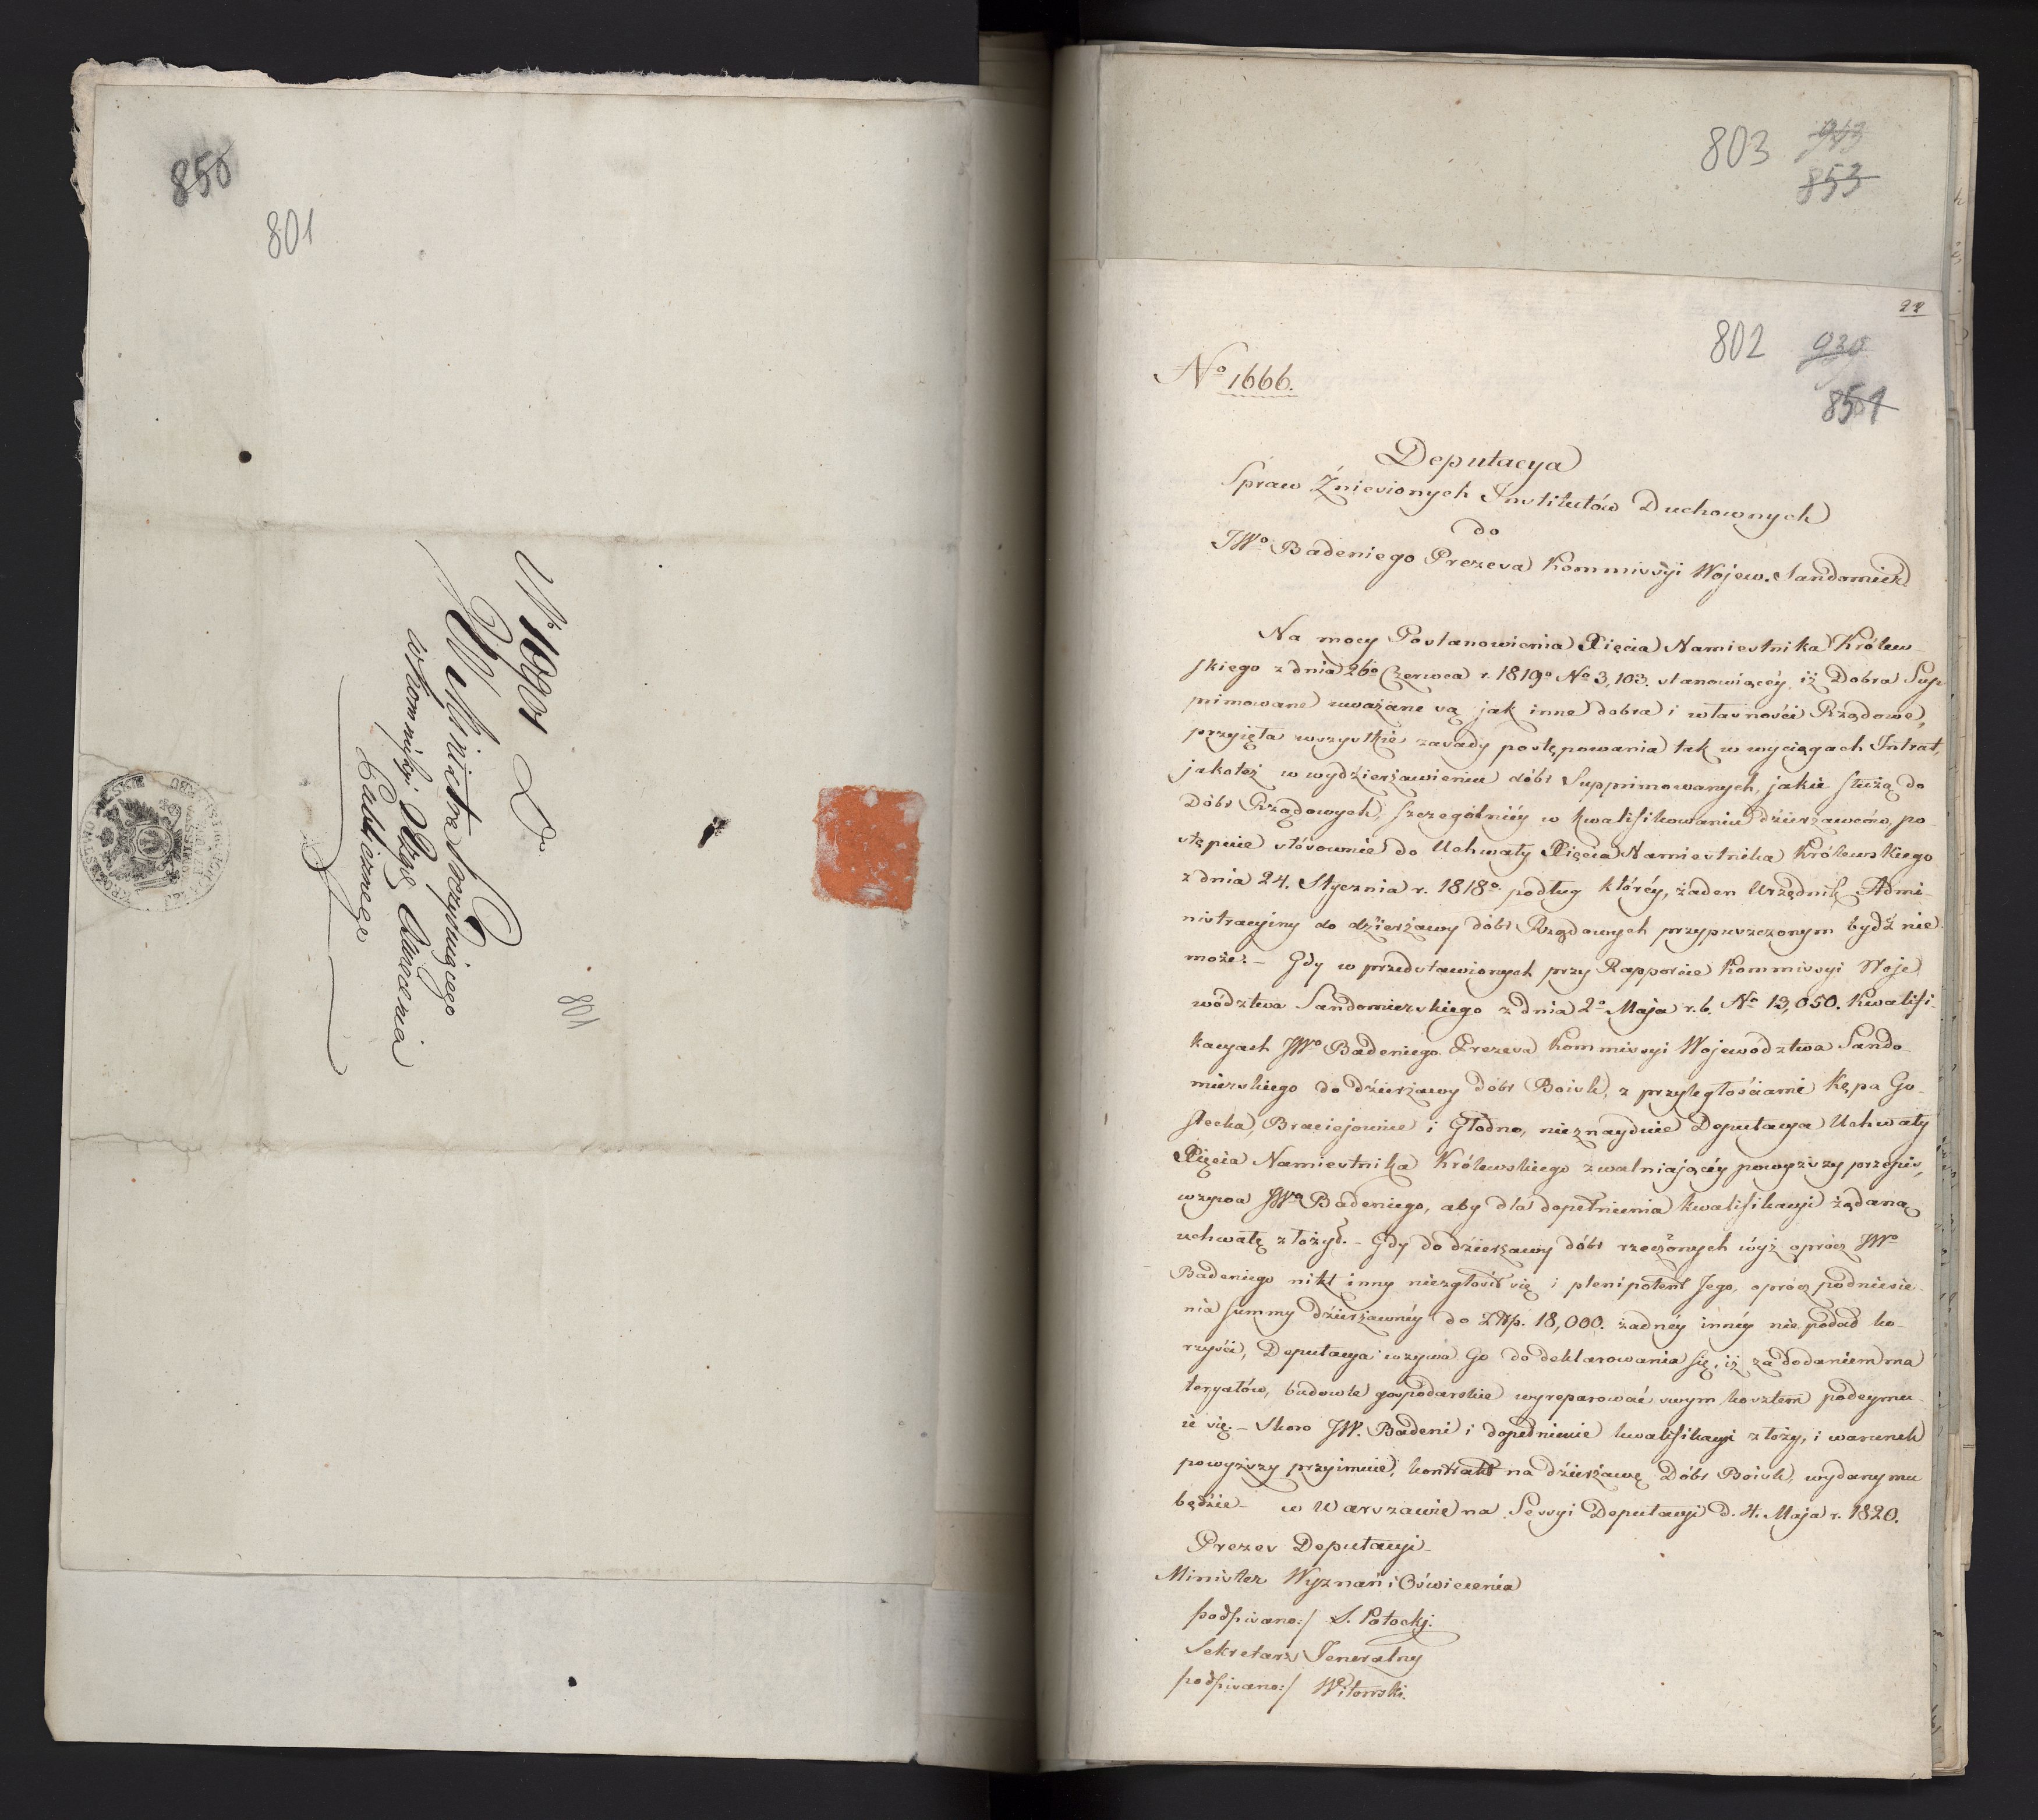 850
801
No 10901 Do
JW Ministra Prezyduiącego
w Kommissyi Oświecenia
Publicznego
801
803
853
22
802
930
851
No 1666.
Deputacya
Spraw Zniesionych Institutów Duchownych
do
JWo Badeniego Prezesa Kommissyi Wojew. Sandomierz
Na mocy Postanowienia Xięcia Namiestnika Królew-
skiego z dnia 26o Czerwca r. 1819o No 3,103. stanowiącéy, iż Dobra Sup-
primowane uważane są jak inne dobra i własności Rządowe,
przyięła wszystkie zasady postępowania tak w wyciągach Intrat,
jakoteż w wydzierżawieniu dóbr Supprimowanych, jakie służą do
Dóbr Rządowych, szczególniéy w kwalifikowaniu dzierżawców, po-
stępuie stósownie do Uchwały Xięcia Namiestnika Królewskiego
z dnia 24. Stycznia r. 1818o podług któréy, żaden Urzędnik Admi-
nistracyiny do dzierżawy dóbr Rządowych przypuszczonym bydź nie
może. - Gdy w przedstawionych przy Rapporcie Kommissyi Woje
wództwa Sandomierskiego z dnia 2o Maja r. b. No 13,050. Kwalifi-
kacyach JWo Badeniego Prezesa Kommissyi Województwa Sando-
mierskiego do dzierżawy dóbr Boisk, z przyległościami Kępa Go-
stecka, Braciejowice i Głodno, nieznayduie Deputacya Uchwały
Xięcia Namiestnika Królewskiego zwalniającéy powyższy przepis,
wzywa JWo Badeniego, aby dla dopełnienia kwalifikacyi żądaną
uchwałę złożył. - Gdy do dzierżawy dóbr rzeczonych wyż oprócz JWo
Badeniego nikt inny niezgłosił się i plenipotent Jego, oprócz podniesie-
nia summy dzierżawnéy do Złp. 18,000. żadnéy innéy nie podał ko-
rzyści, Deputacya wzywa Go do deklarowania się, iż za dodaniem ma
teryałów, budowle gospodarskie wyreparować swym kosztem podeymu-
ie się. - Skoro JW. Badeni i dopełnienie kwalifikacyi złoży, i warunek
powyższy przyimuie, kontrakt na dzierżawę Dóbr Boisk, wydanym mu
będzie - w Warszawie na Sessyi Deputacyi d. 4. Maja r. 1820.
Prezes Deputacyi -
Minister Wyznań i Oświecenia
podpisano:/ S. Potocki:
Sekretarz Jeneralny
podpisano:/ Witowski.